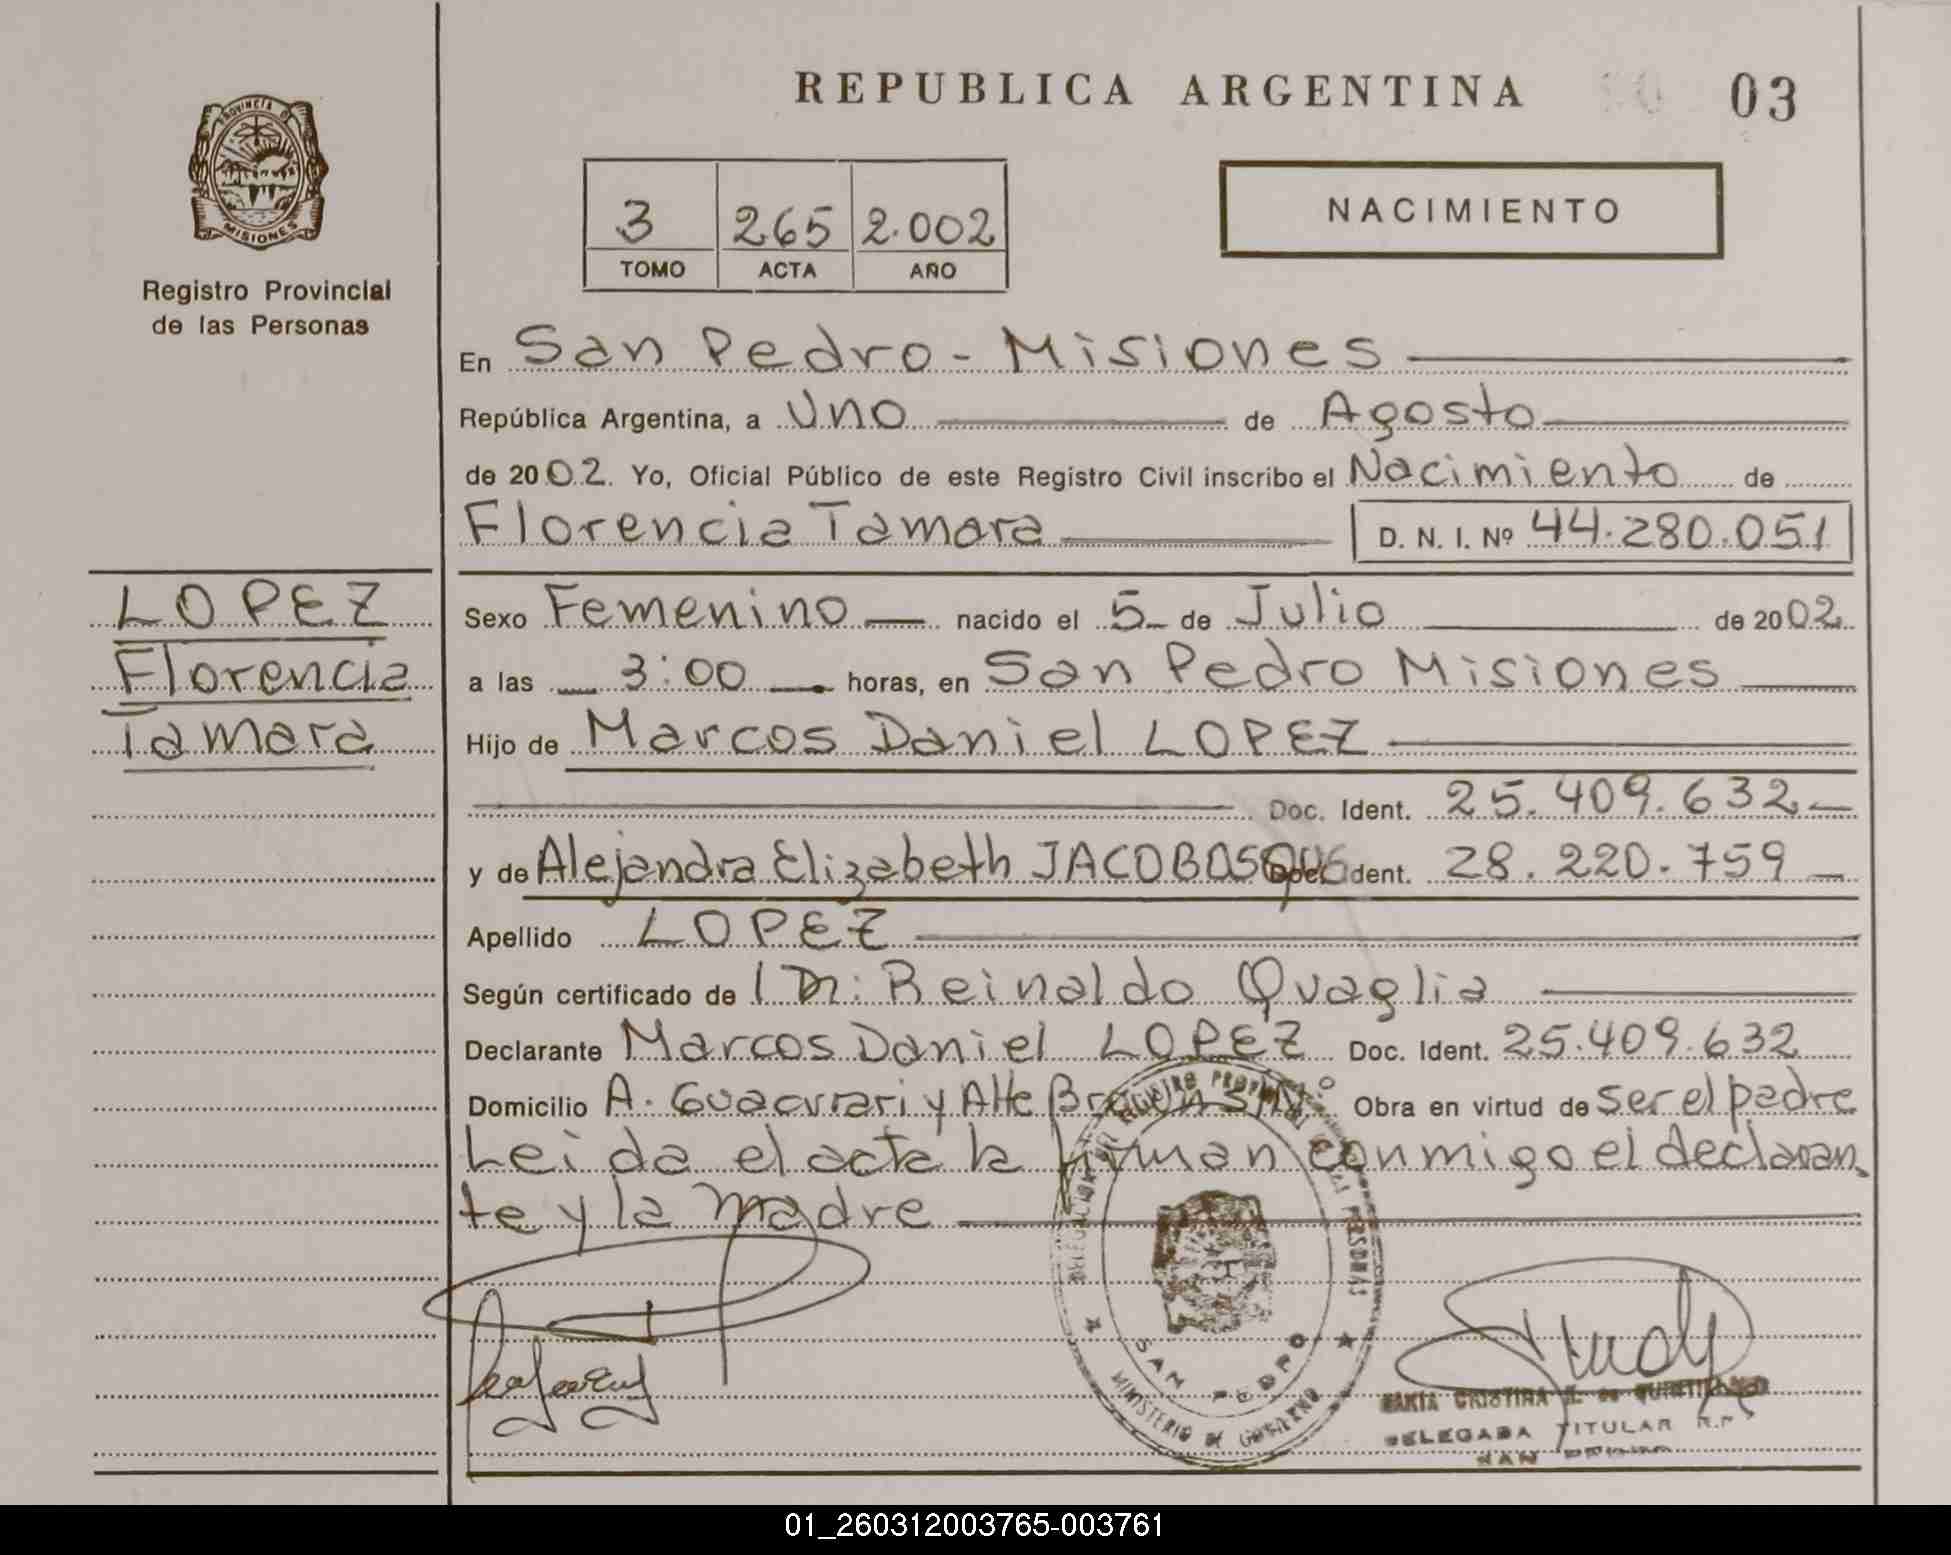 REPUBLICA ARGENTINA 03
PROVINCIA DE
MISIONES
Registro Provincial
de las Personas
3 265 2.002
TOMO ACTA AÑO
NACIMIENTO
En San Pedro - Misiones
República Argentina, a Uno de Agosto
de 2002. Yo, Oficial Público de este Registro Civil inscribo el Nacimiento de
Florencia Tamara D. N. I. Nº 44.280.051
LOPEZ
Florencia
Tamara
Sexo Femenino nacido el 5 de Julio de 2002
a las 3:00 horas, en San Pedro Misiones
Hijo de Marcos Daniel LOPEZ
Doc. Ident. 25.409.632
y de Alejandra Elizabeth Doc. Ident. 28.220.759
Apellido LOPEZ
Según certificado de Dr: Reinaldo Quaglia
Declarante Marcos Daniel LOPEZ Doc. Ident. 25.409.632
Domicilio A. Guacurari y Alte Brown S/Nº Obra en virtud de ser el padre
Leida el acta la firman conmigo el declaran
te y la madre
SAN PEDRO
MINISTERIO DE GOBIERNO
CRISTINA
DELEGADA TITULAR R.P
SAN
01_260312003765-003761